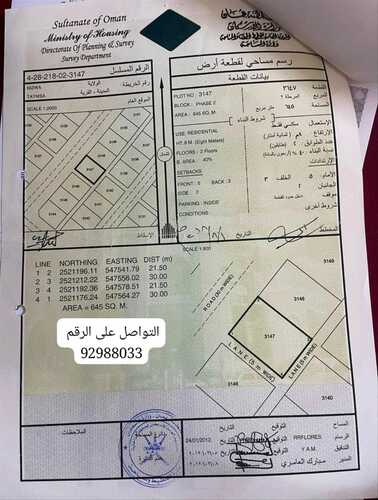 Sultanate of Oman
Ministry of Housing
Directorate Of Planning & Survey
Survey Department
سلطنة عمان
الرقم المسلسل
4-28-218-02-3147
رقم الخريطة
الولاية
NIZWA
المدينة ، القرية
TAYMSA
الموقع العام
SCALE 1:5000
3147
رسم مساحي لقطعة أرض
بيانات القطعة
PLOT NO : 3147
القطعة ٣١٤٧
BLOCK : PHASE 2
المربع المرحلة ٢
AREA : 645 SQ. M.
المساحة ٦٤٥ متر مربع
شروط البناء
USE : RESIDENTIAL
الاستعمال سكني فقط
HT. 8 M. (Eight Meters)
الارتفاع ٨م (ثمانية أمتار)
FLOORS : 2 Floors
عدد الطوابق ٢ (طابقين)
B. AREA : 40%
نسبة البناء ٤٠٪ (أربعون بالمائة)
SETBACKS
الارتدادات
FRONT : 5 BACK : 3
الأمام ٥ الخلف ٣
SIDE : 2
الجانبان ٢
PARKING : INSIDE
موقف
CONDITIONS
شروط أخرى
المخطط
التوقيع
التاريخ
SCALE 1:500
LINE NORTHING EASTING DIST (m)
1 2 2521196.11 547541.79 21.50
2 3 2521212.22 547556.02 30.00
3 4 2521192.36 547578.51 21.50
4 1 2521176.24 547564.27 30.00
AREA = 645 SQ. M.
التواصل على الرقم
92988033
3145
3146
3147
3148
3149
3140
LANE (5 m. WIDE)
LANE (5 m. WIDE)
ملاحظات
24/01/2012
التاريخ
التوقيع
RRFLORES
المساح
التاريخ
التوقيع
Y.A.M.
الرسام
التدقيق
مبارك العامري
المدير